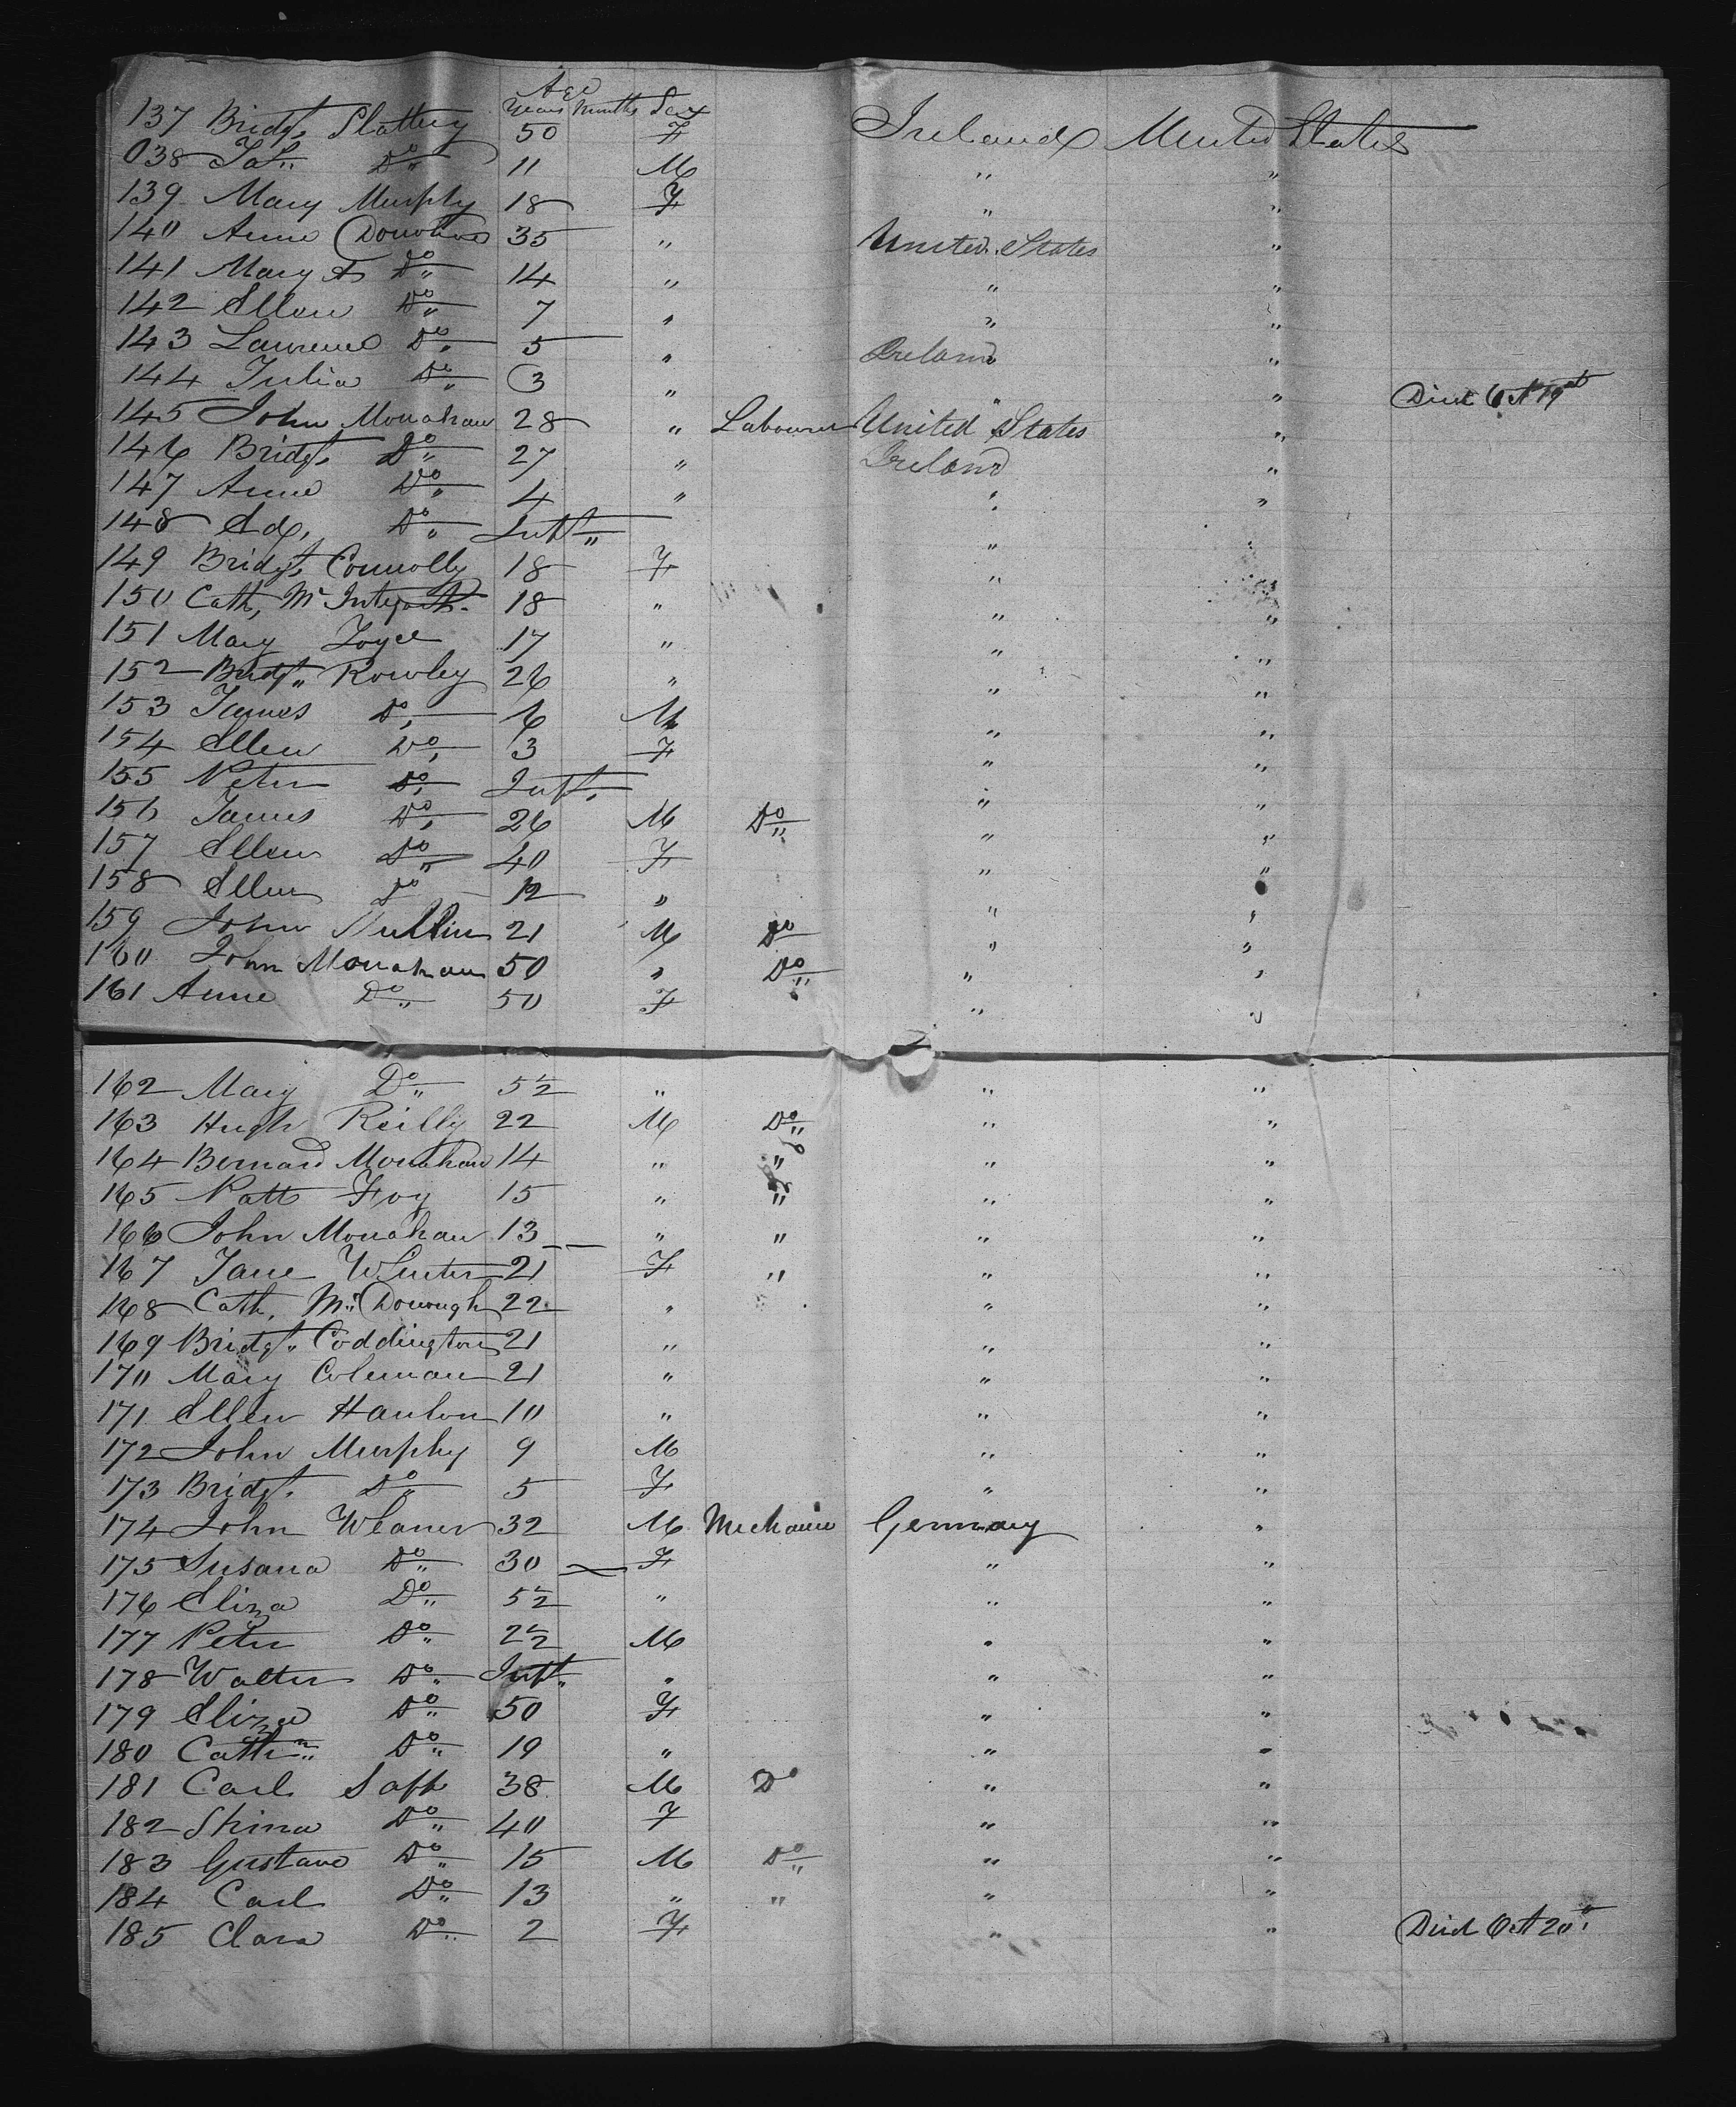 Age
Years Months Sex
137 Bridgt. Slattery 50 F Ireland United States
038 Jas. Do 11 M " "
139 Mary Murphy 18 F " "
140 Anne Donohue 35 " United States "
141 Mary A Do 14 " " "
142 Ellen Do 7 " " "
143 Laurence Do 5 " Ireland "
144 Julia Do 3 " " " Died Oct 19
145 John Monahan 28 " Labourer United States "
146 Bridgt. Do 27 " Ireland "
147 Anne Do 4 " " "
148 Ed, Do Inft " "
149 Bridgt. Connolly 18 F " "
150 Cath, Mc 18 " " "
151 Mary Joyce 17 " " "
152 Bridgt. Rowley 26 " " "
153 James Do, 6 M " "
154 Ellen Do, 3 F " "
155 Peter Do, Inft. " "
156 James Do, 26 M Do " "
157 Ellen Do 40 F " "
158 Ellen Do 12 " " "
159 John 21 M Do " "
160 John Monahan 50 " Do " "
161 Anne Do 50 F " "
162 Mary Do 5½ " " "
163 Hugh Reilly 22 M Do " "
164 Bernard Monahan 14 " " " "
165 Patt Foy 15 " " " "
166 John Monahan 13 " " " "
167 Jane Winter 21 F " " "
168 Cath, Mc Donough 22 " " "
169 Bridgt. Coddington 21 " " "
170 Mary Coleman 21 " " "
171 Ellen Hanlon 10 " " "
172 John Murphy 9 M " "
173 Bridgt. Do 5 F " "
174 John 32 M Mechanic Germany "
175 Susana Do 30 F " "
176 Eliza Do 5½ " " "
177 Peter Do 2½ M " "
178 Walter Do Inft. " " "
179 Eliza Do 50 F " "
180 Do 19 " " "
181 Carl 38 M Do " "
182 Do 40 F " "
183 Gustave Do 15 M Do " "
184 Carl Do 13 " " " "
185 Clara Do 2 F " " Died Oct 20